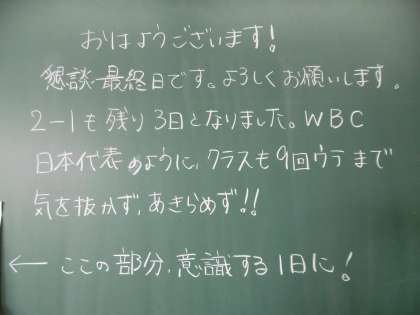 おはようございます!
懇談最終日です。よろしくお願いします。
2-1も残り3日となりました。WBC
日本代表のように、クラスも9回ウラまで
気を抜かず、あきらめず!!
← ここの部分、意識する1日に!